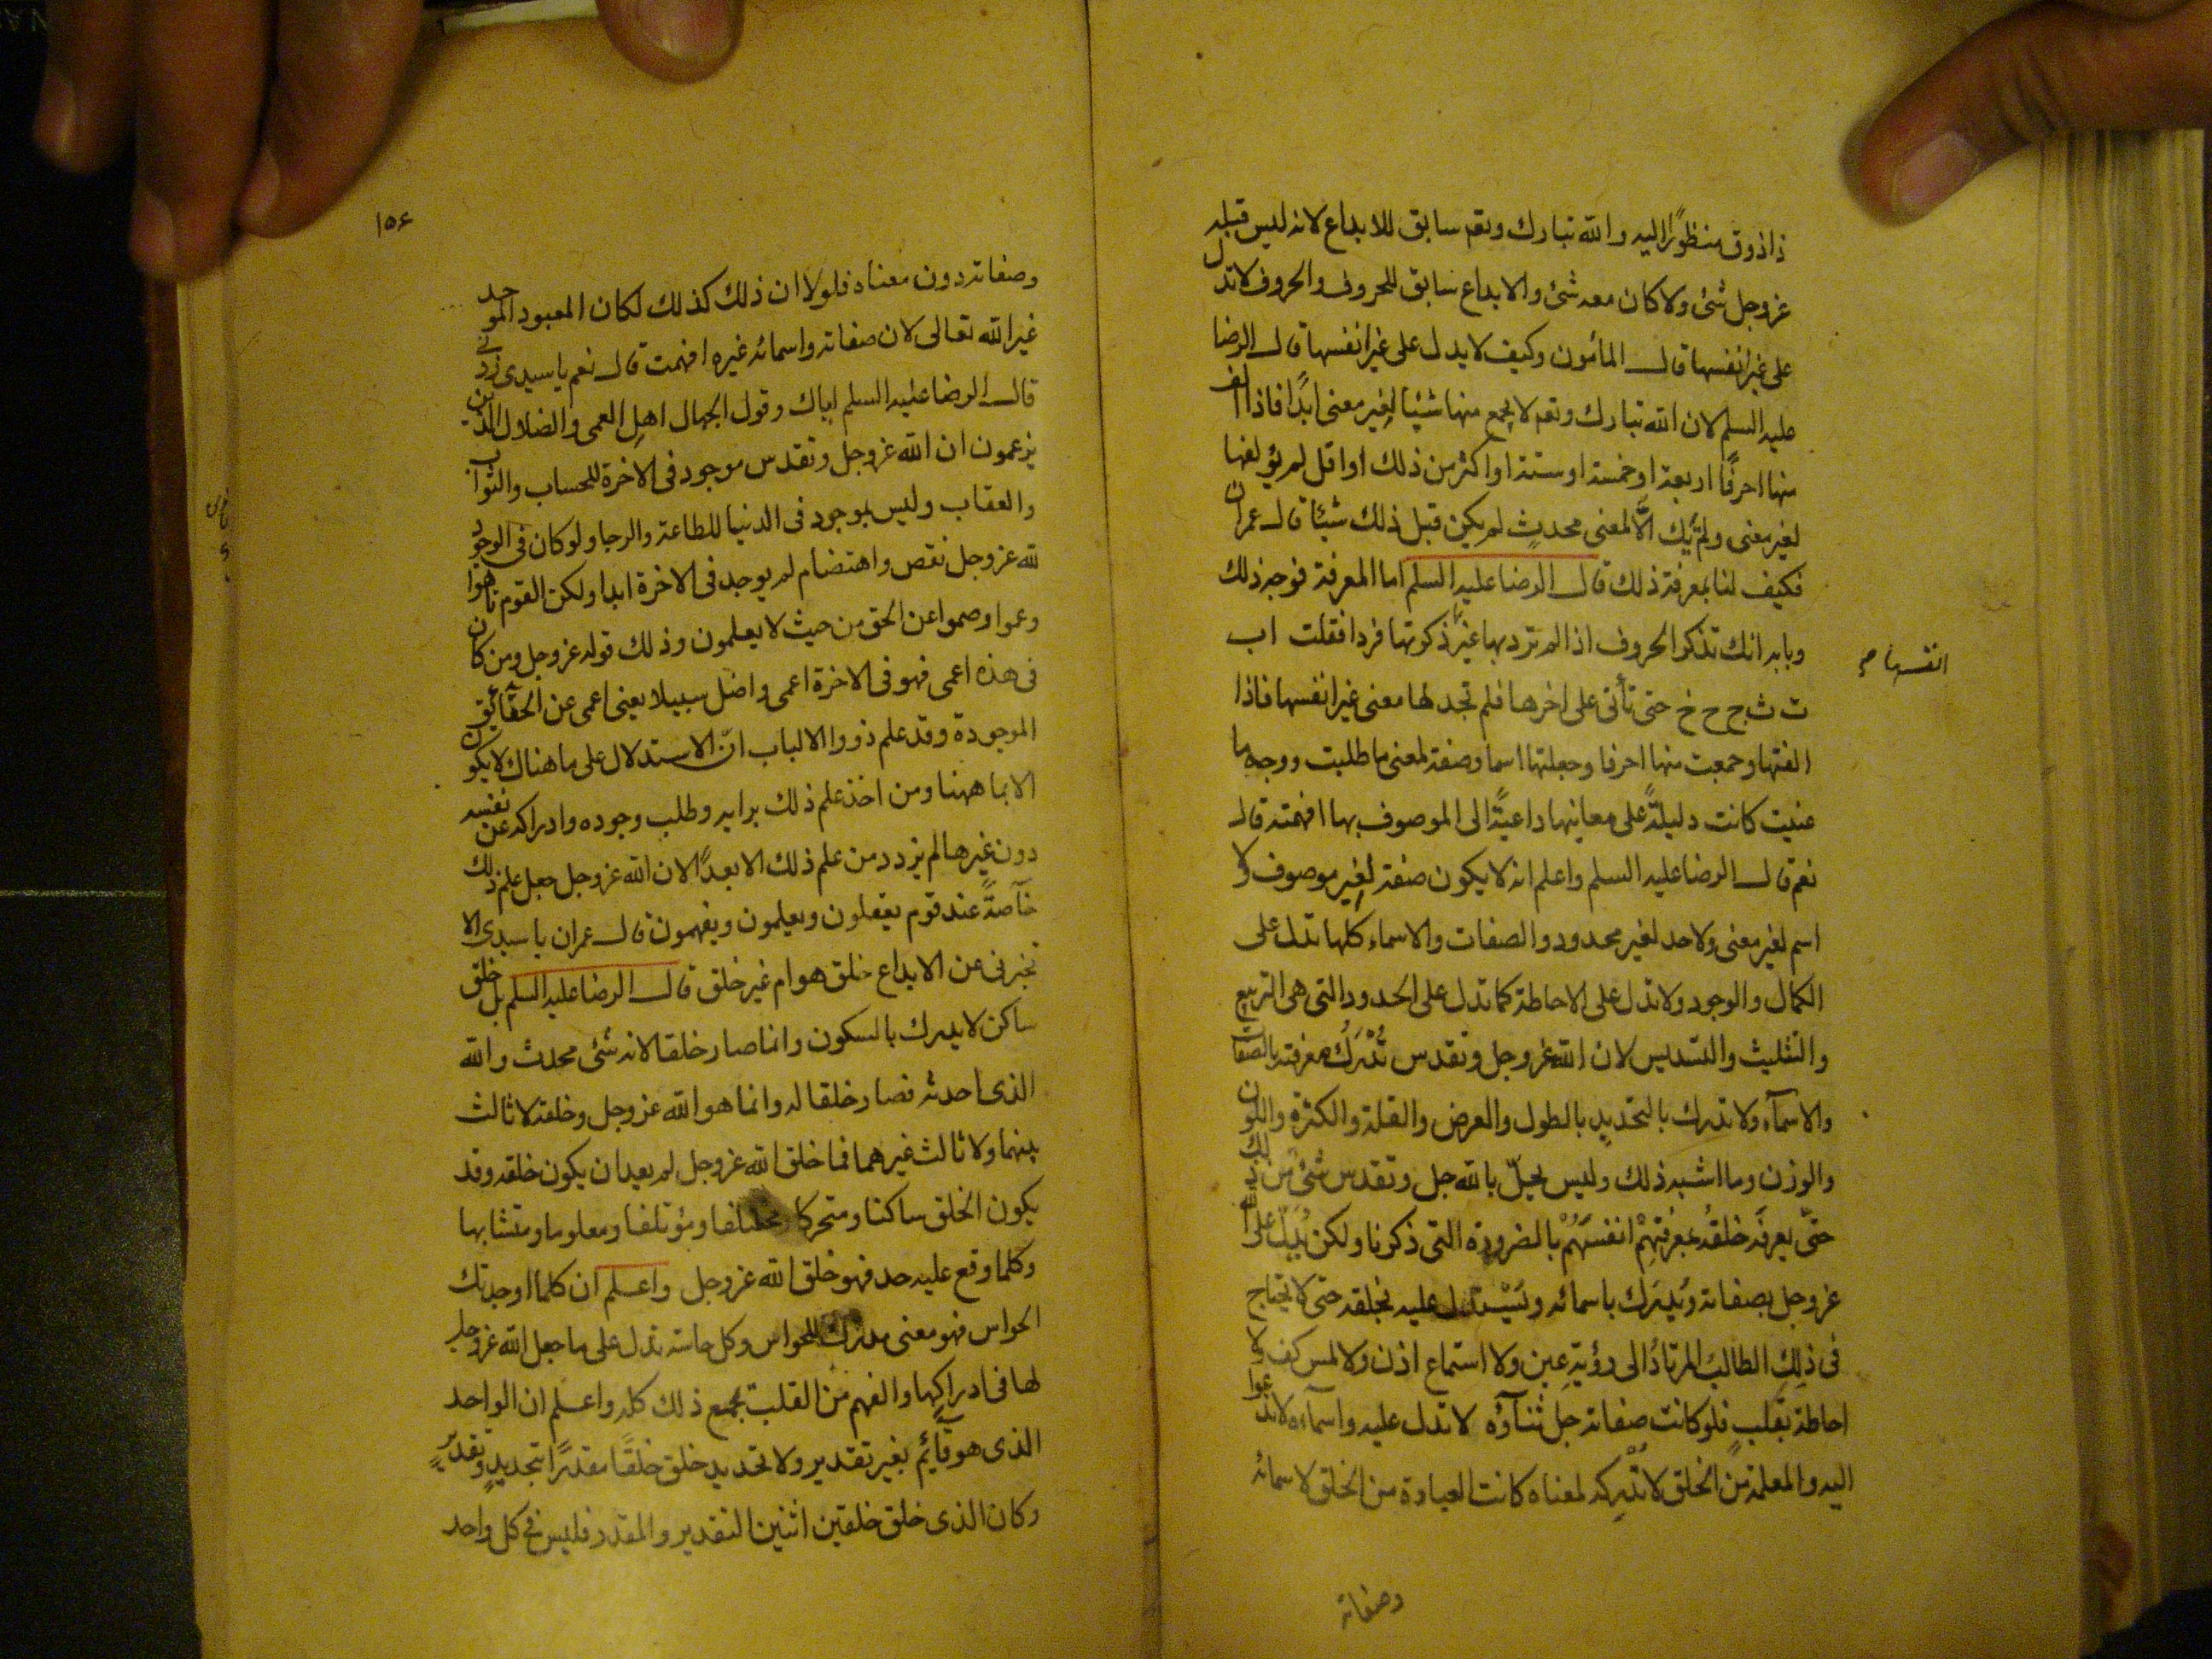 ذا ذوق منظورًا اليه والله تبارك وتعم سابق للابداع لانه ليس قبله
عزوجل شئ ولا كان معه شئ والابداع سابق للحروف والحروف لا تدل
على غير انفسها قال المأمون وكيف لا يدل على غير انفسها قال الرضا
عليه السلم لان الله تبارك وتعم لا يجمع منها شيئا لغير معنى ابدًا فاذا الف
منها احرفًا اربعة او خمسة او ستة او اكثر من ذلك او اقل لم يؤلفها
لغير معنى ولم يك الّا لمعنى محدث لم يكن قبل ذلك شيئا قال عمران
فكيف لنا بمعرفة ذلك قال الرضا عليه السلم اما المعرفة فوجه ذلك
وبابه انك تذكر الحروف اذا لم ترد بها غير ذكرتها فردا فقلت ا ب
انفسها صح
ت ث ج ح خ حتى تأتى على اخرها فلم تجد لها معنى غير انفسها فاذا
الفتها وجمعت منها احرفا وجعلتها اسما وصفة لمعنى ما طلبت ووجه ما
عنيت كانت دليلةً على معانيها داعيةً الى الموصوف بها افهمته قال
نعم قال الرضا عليه السلم واعلم انه لا يكون صفة لغير موصوف ولا
اسم لغير معنى ولا حد لغير محدود والصفات والاسماء كلها تدل على
الكمال والوجود ولا تدل على الاحاطة كما تدل على الحدود التى هى التربيع
والتثليث والتسديس لان الله عزوجل وتقدس تُدْرَكُ معرفته بالصفات
والاسمآء ولا تدرك بالتحديد بالطول والعرض والقلة والكثرة واللون
والوزن وما اشبه ذلك وليس يحلّ بالله جل وتقدس شئ من ذلك
حتّى يعرفَه خلقُه بمعرفتهم انفسَهُمْ بالضرورة التى ذكرنا ولكن يُدَلّ على الله
عزوجل بصفاته ويُدرَك باسمائه ويُسْتدل عليه بخلقه حتى لا يحتاج
فى ذلك الطالب المرتادُ الى رؤية عين ولا استماع اذن ولا لمس كف ولا
احاطة بقلبٍ فلو كانت صفاته جل ثنآؤه لا تدل عليه واسمآءه لا تدعوا
اليه والمعلمة من الخلق لا تُدْرِكه لمعناه كانت العبادة من الخلق لاسمائه
وصفاته
١٥٤
وصفاته دون معناه فلولا ان ذلك كذلك لكان المعبود الموحد
غير الله تعالى لان صفاته واسمائه غيره افهمت قال نعم يا سيدى زدنى
قال الرضا عليه السلم اياك وقول الجهال اهل العمى والضلال الذين
يزعمون ان الله عزوجل وتقدس موجود فى الاخرة للحساب والثواب
والعقاب وليس بموجود فى الدنيا للطاعة والرجا ولو كان فى الوجود
لله عزوجل نقص واهتضام لم يوجد فى الاخرة ابدا ولكن القوم تاهوا
وعموا وصموا عن الحق من حيث لا يعلمون وذلك قوله عزوجل ومن كان
فى هذه اعمى فهو فى الاخرة اعمى واضل سبيلا يعنى اعمى عن الحقآئق
الموجودة وقد علم ذووا الالباب انّ الاستدلال على ما هناك لا يكون
الا بما ههنا ومن اخذ علم ذلك برايه وطلب وجوده وادراكه عن نفسه
دون غيرها لم يزدد من علم ذلك الا بعدًا لان الله عزوجل جعل علم ذلك
خآصةً عند قوم يعقلون ويعلمون ويفهمون قال عمران يا سيدى الا
تخبرنى عن الابداع خلق هو ام غير خلق قال الرضا عليه السلم بل خلق
ساكن لا يدرك بالسكون وانما صار خلقا لانه شئ محدث والله
الذى احدثه فصار خلقا له وانما هو الله عزوجل وخلقه لا ثالث
بينهما ولا ثالث غيرهما فما خلق الله عزوجل لم يعد ان يكون خلقه وقد
يكون الخلق ساكنا ومتحركا ومختلفا ومؤتلفا ومعلوما ومتشابها
وكلما وقع عليه حد فهو خلق الله عزوجل واعلم ان كلما اوجدتك
الحواس فهو معنى مدرك للحواس وكل حاسة تدل على ما جعل الله عزوجل
لها فى ادراكها والفهم من القلب بجميع ذلك كله واعلم ان الواحد
الذى هو قآئم بغير تقدير ولا تحديد خلق خلقًا مقدرًا بتحديدٍ وتقديرٍ
وكان الذى خلق خلقين اثنين التقدير والمقدر فليس فى كل واحد